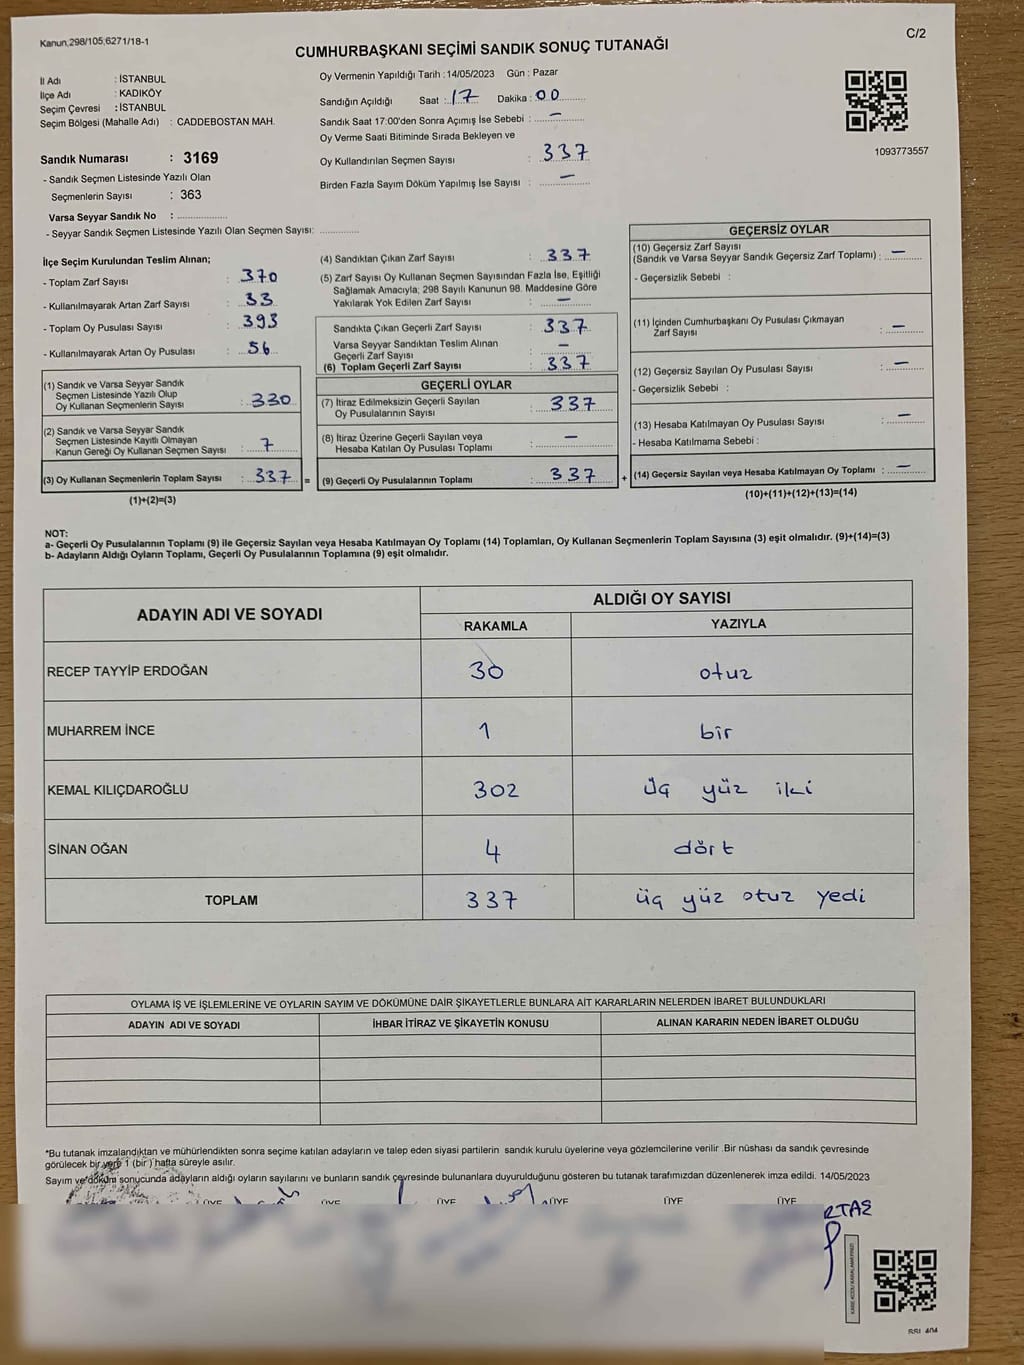 Kanun,298/105,6271/18-1
C/2
CUMHURBAŞKANI SEÇİMİ SANDIK SONUÇ TUTANAĞI
İl Adı : İSTANBUL
İlçe Adı : KADIKÖY
Seçim Çevresi : İSTANBUL
Seçim Bölgesi (Mahalle Adı) : CADDEBOSTAN MAH.
Sandık Numarası : 3169
- Sandık Seçmen Listesinde Yazılı Olan
Seçmenlerin Sayısı : 363
Varsa Seyyar Sandık No : ....................
- Seyyar Sandık Seçmen Listesinde Yazılı Olan Seçmen Sayısı: ...............
Oy Vermenin Yapıldığı Tarih : 14/05/2023 Gün : Pazar
Sandığın Açıldığı Saat : 17 Dakika : 00
Sandık Saat 17:00'den Sonra Açımış İse Sebebi : —
Oy Verme Saati Bitiminde Sırada Bekleyen ve
Oy Kullandırılan Seçmen Sayısı : 337
Birden Fazla Sayım Döküm Yapılmış İse Sayısı : —
1093773557
İlçe Seçim Kurulundan Teslim Alınan;
- Toplam Zarf Sayısı : 370
- Kullanılmayarak Artan Zarf Sayısı : 33
- Toplam Oy Pusulası Sayısı : 393
- Kullanılmayarak Artan Oy Pusulası : 56
(1) Sandık ve Varsa Seyyar Sandık
Seçmen Listesinde Yazılı Olup
Oy Kullanan Seçmenlerin Sayısı : 330
(2) Sandık ve Varsa Seyyar Sandık
Seçmen Listesinde Kayıtlı Olmayan
Kanun Gereği Oy Kullanan Seçmen Sayısı : 7
(3) Oy Kullanan Seçmenlerin Toplam Sayısı : 337 =
(1)+(2)=(3)
(4) Sandıktan Çıkan Zarf Sayısı : 337
(5) Zarf Sayısı Oy Kullanan Seçmen Sayısından Fazla İse, Eşitliği
Sağlamak Amacıyla; 298 Sayılı Kanunun 98. Maddesine Göre
Yakılarak Yok Edilen Zarf Sayısı : —
Sandıkta Çıkan Geçerli Zarf Sayısı : 337
Varsa Seyyar Sandıktan Teslim Alınan
Geçerli Zarf Sayısı : —
(6) Toplam Geçerli Zarf Sayısı : 337
GEÇERLİ OYLAR
(7) İtiraz Edilmeksizin Geçerli Sayılan
Oy Pusulalarının Sayısı : 337
(8) İtiraz Üzerine Geçerli Sayılan veya
Hesaba Katılan Oy Pusulası Toplamı : —
(9) Geçerli Oy Pusulalarının Toplamı : 337 +
GEÇERSİZ OYLAR
(10) Geçersiz Zarf Sayısı
(Sandık ve Varsa Seyyar Sandık Geçersiz Zarf Toplamı) : —
- Geçersizlik Sebebi :
(11) İçinden Cumhurbaşkanı Oy Pusulası Çıkmayan
Zarf Sayısı : —
(12) Geçersiz Sayılan Oy Pusulası Sayısı : —
- Geçersizlik Sebebi :
(13) Hesaba Katılmayan Oy Pusulası Sayısı : —
- Hesaba Katılmama Sebebi :
(14) Geçersiz Sayılan veya Hesaba Katılmayan Oy Toplamı : —
(10)+(11)+(12)+(13)=(14)
NOT:
a- Geçerli Oy Pusulalarının Toplamı (9) ile Geçersiz Sayılan veya Hesaba Katılmayan Oy Toplamı (14) Toplamları, Oy Kullanan Seçmenlerin Toplam Sayısına (3) eşit olmalıdır. (9)+(14)=(3)
b- Adayların Aldığı Oyların Toplamı, Geçerli Oy Pusulalarının Toplamına (9) eşit olmalıdır.
ADAYIN ADI VE SOYADI
ALDIĞI OY SAYISI
RAKAMLA YAZIYLA
RECEP TAYYİP ERDOĞAN 30 otuz
MUHARREM İNCE 1 bir
KEMAL KILIÇDAROĞLU 302 üç yüz iki
SİNAN OĞAN 4 dört
TOPLAM 337 üç yüz otuz yedi
OYLAMA İŞ VE İŞLEMLERİNE VE OYLARIN SAYIM VE DÖKÜMÜNE DAİR ŞİKAYETLERLE BUNLARA AİT KARARLARIN NELERDEN İBARET BULUNDUKLARI
ADAYIN ADI VE SOYADI İHBAR İTİRAZ VE ŞİKAYETİN KONUSU ALINAN KARARIN NEDEN İBARET OLDUĞU
*Bu tutanak imzalandıktan ve mühürlendikten sonra seçime katılan adayların ve talep eden siyasi partilerin sandık kurulu üyelerine veya gözlemcilerine verilir .Bir nüshası da sandık çevresinde
görülecek bir yere 1 (bir ) hafta süreyle asılır.
Sayım ve döküm sonucunda adayların aldığı oyların sayılarını ve bunların sandık çevresinde bulunanlara duyurulduğunu gösteren bu tutanak tarafımızdan düzenlenerek imza edildi. 14/05/2023
ÜYE ÜYE ÜYE ÜYE ÜYE ÜYE